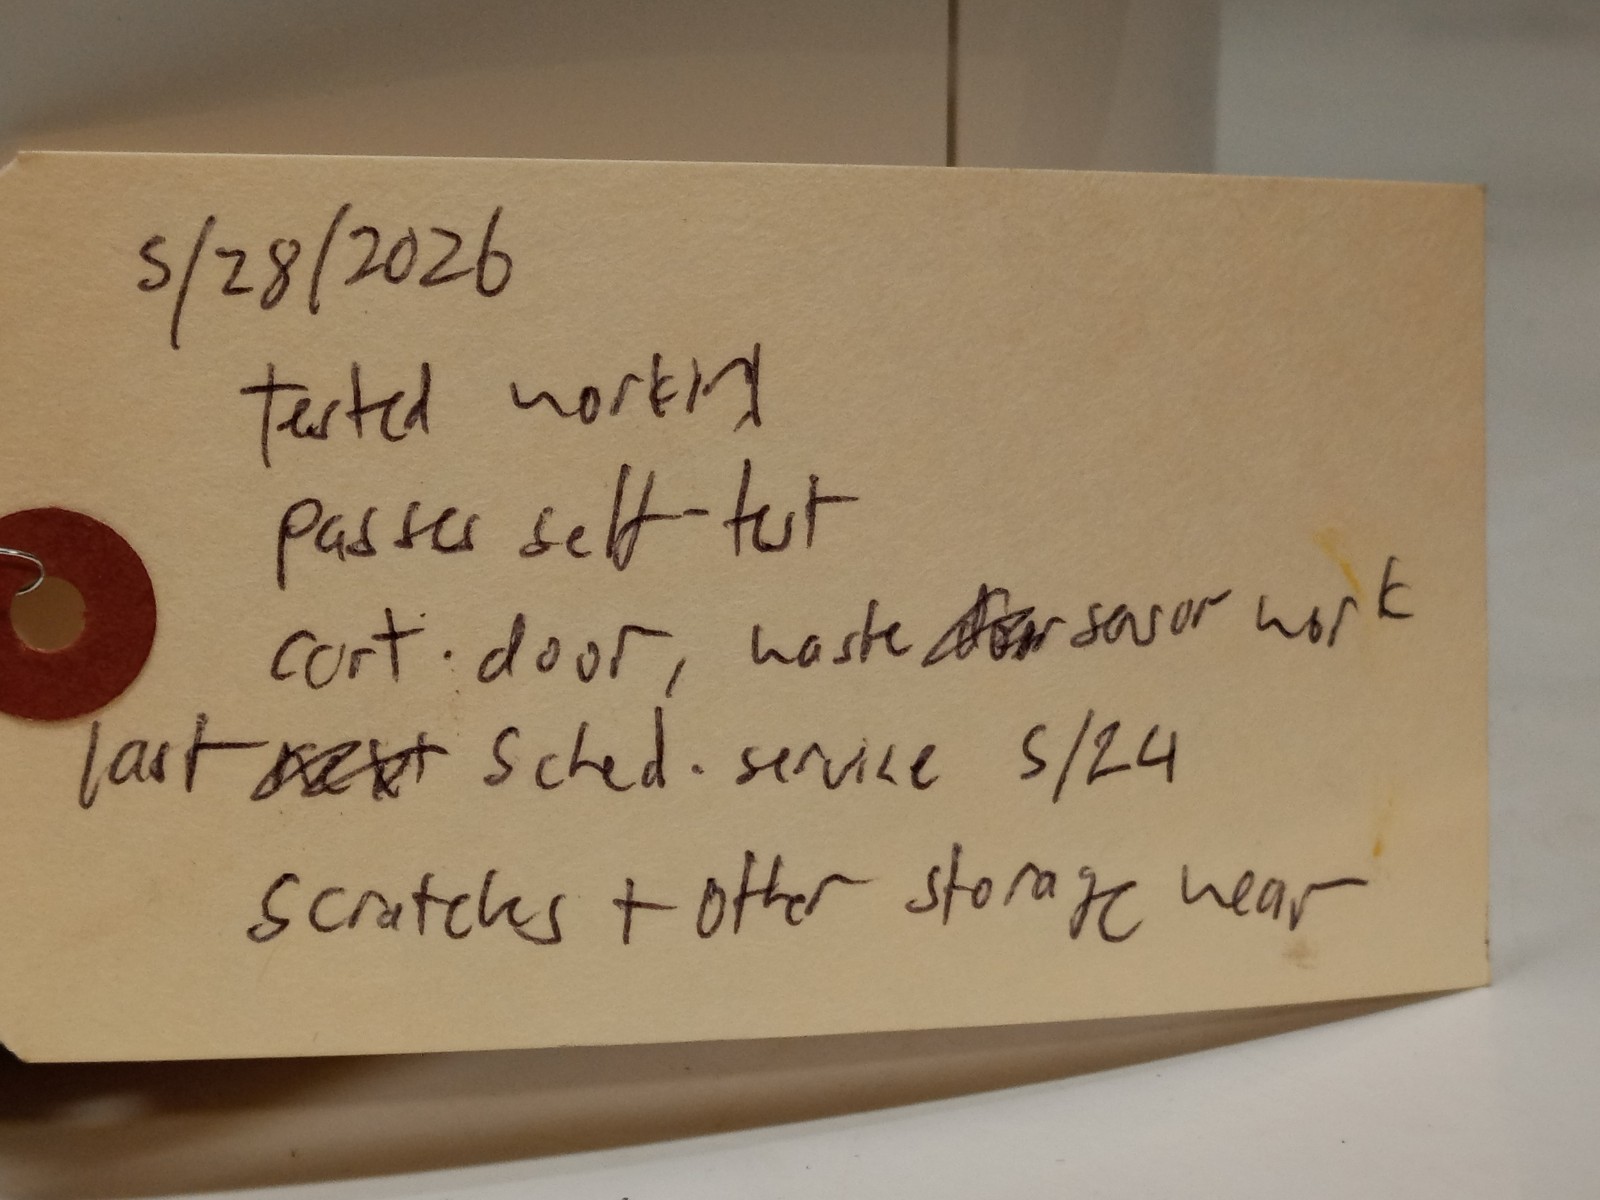 5/28/2026
Tested working
passes self-test
cart. door, waste sensor work
last sched. service 5/24
scratches + other storage wear